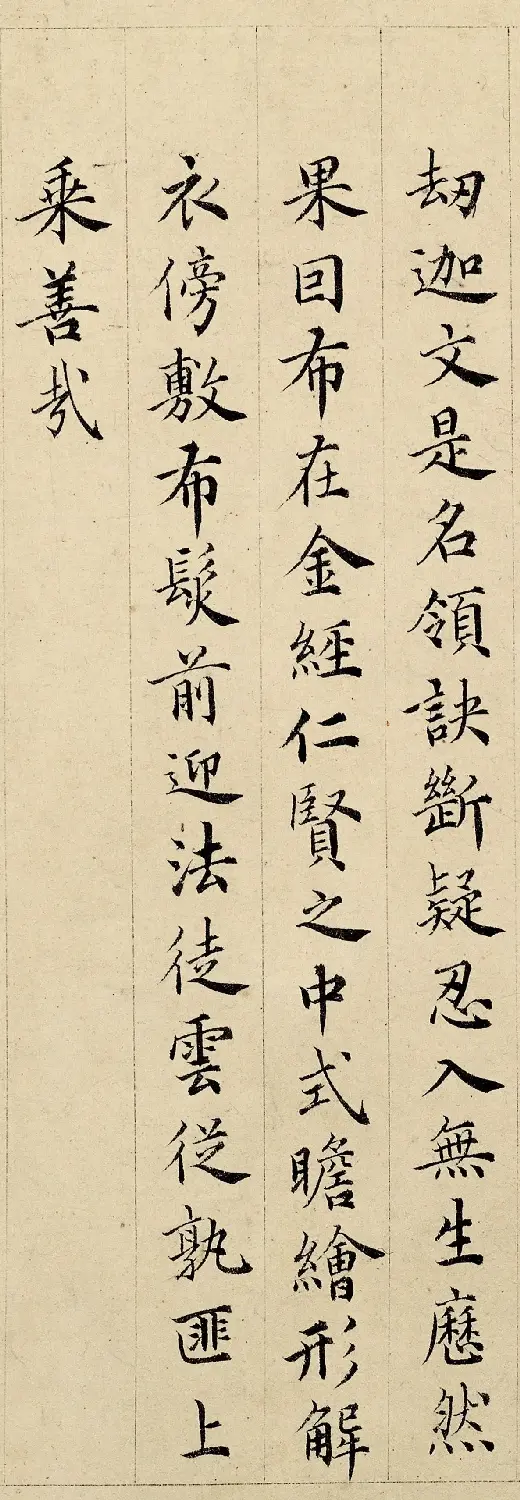 劫迦文是名領訣斷疑忍入無生歷然
果因布在金經仁賢之中式瞻繪形解
衣傍敷布髮前迎法徒雲從孰匪上
乘善哉